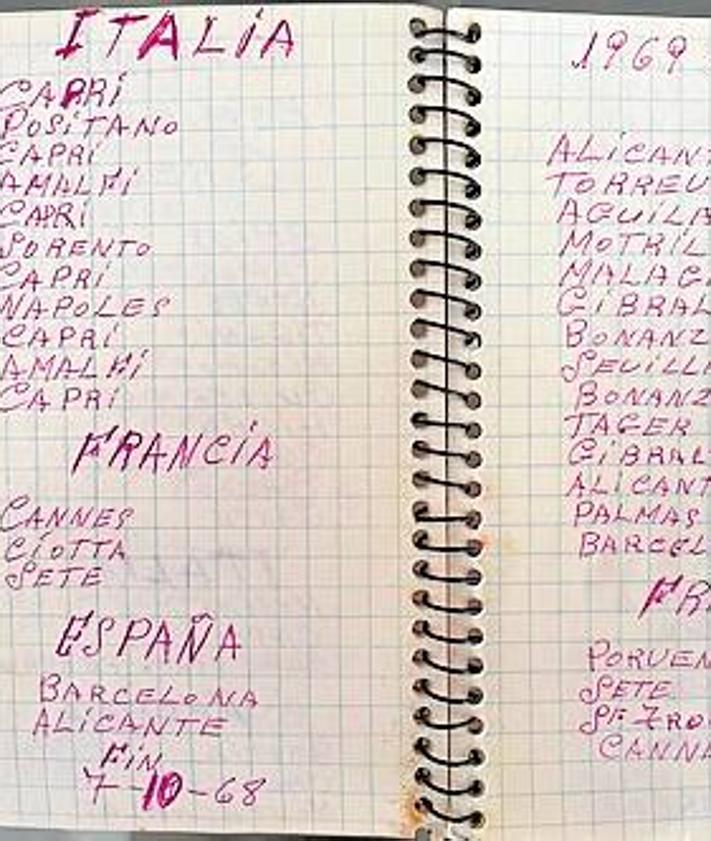 ITALIA
CAPRI
POSITANO
CAPRI
AMALFI
CAPRI
SORENTO
CAPRI
NAPOLES
CAPRI
AMALFI
CAPRI
FRANCIA
CANNES
CIOTTA
SETE
ESPAÑA
BARCELONA
ALICANTE
FIN
7-10-68
1969
ALICANT
TORREV
AGUILA
MOTRIL
MALAG
GIBRAL
BONANZ
SEVILL
BONANZ
TAGER
GIBRAL
ALICANT
PALMAS
BARCEL
FR
PORVEN
SETE
CANN